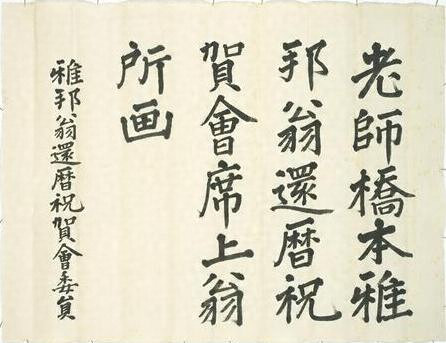 老師橋本雅
邦翁還暦祝
賀會席上翁
所画
雅邦翁還暦祝賀會委員